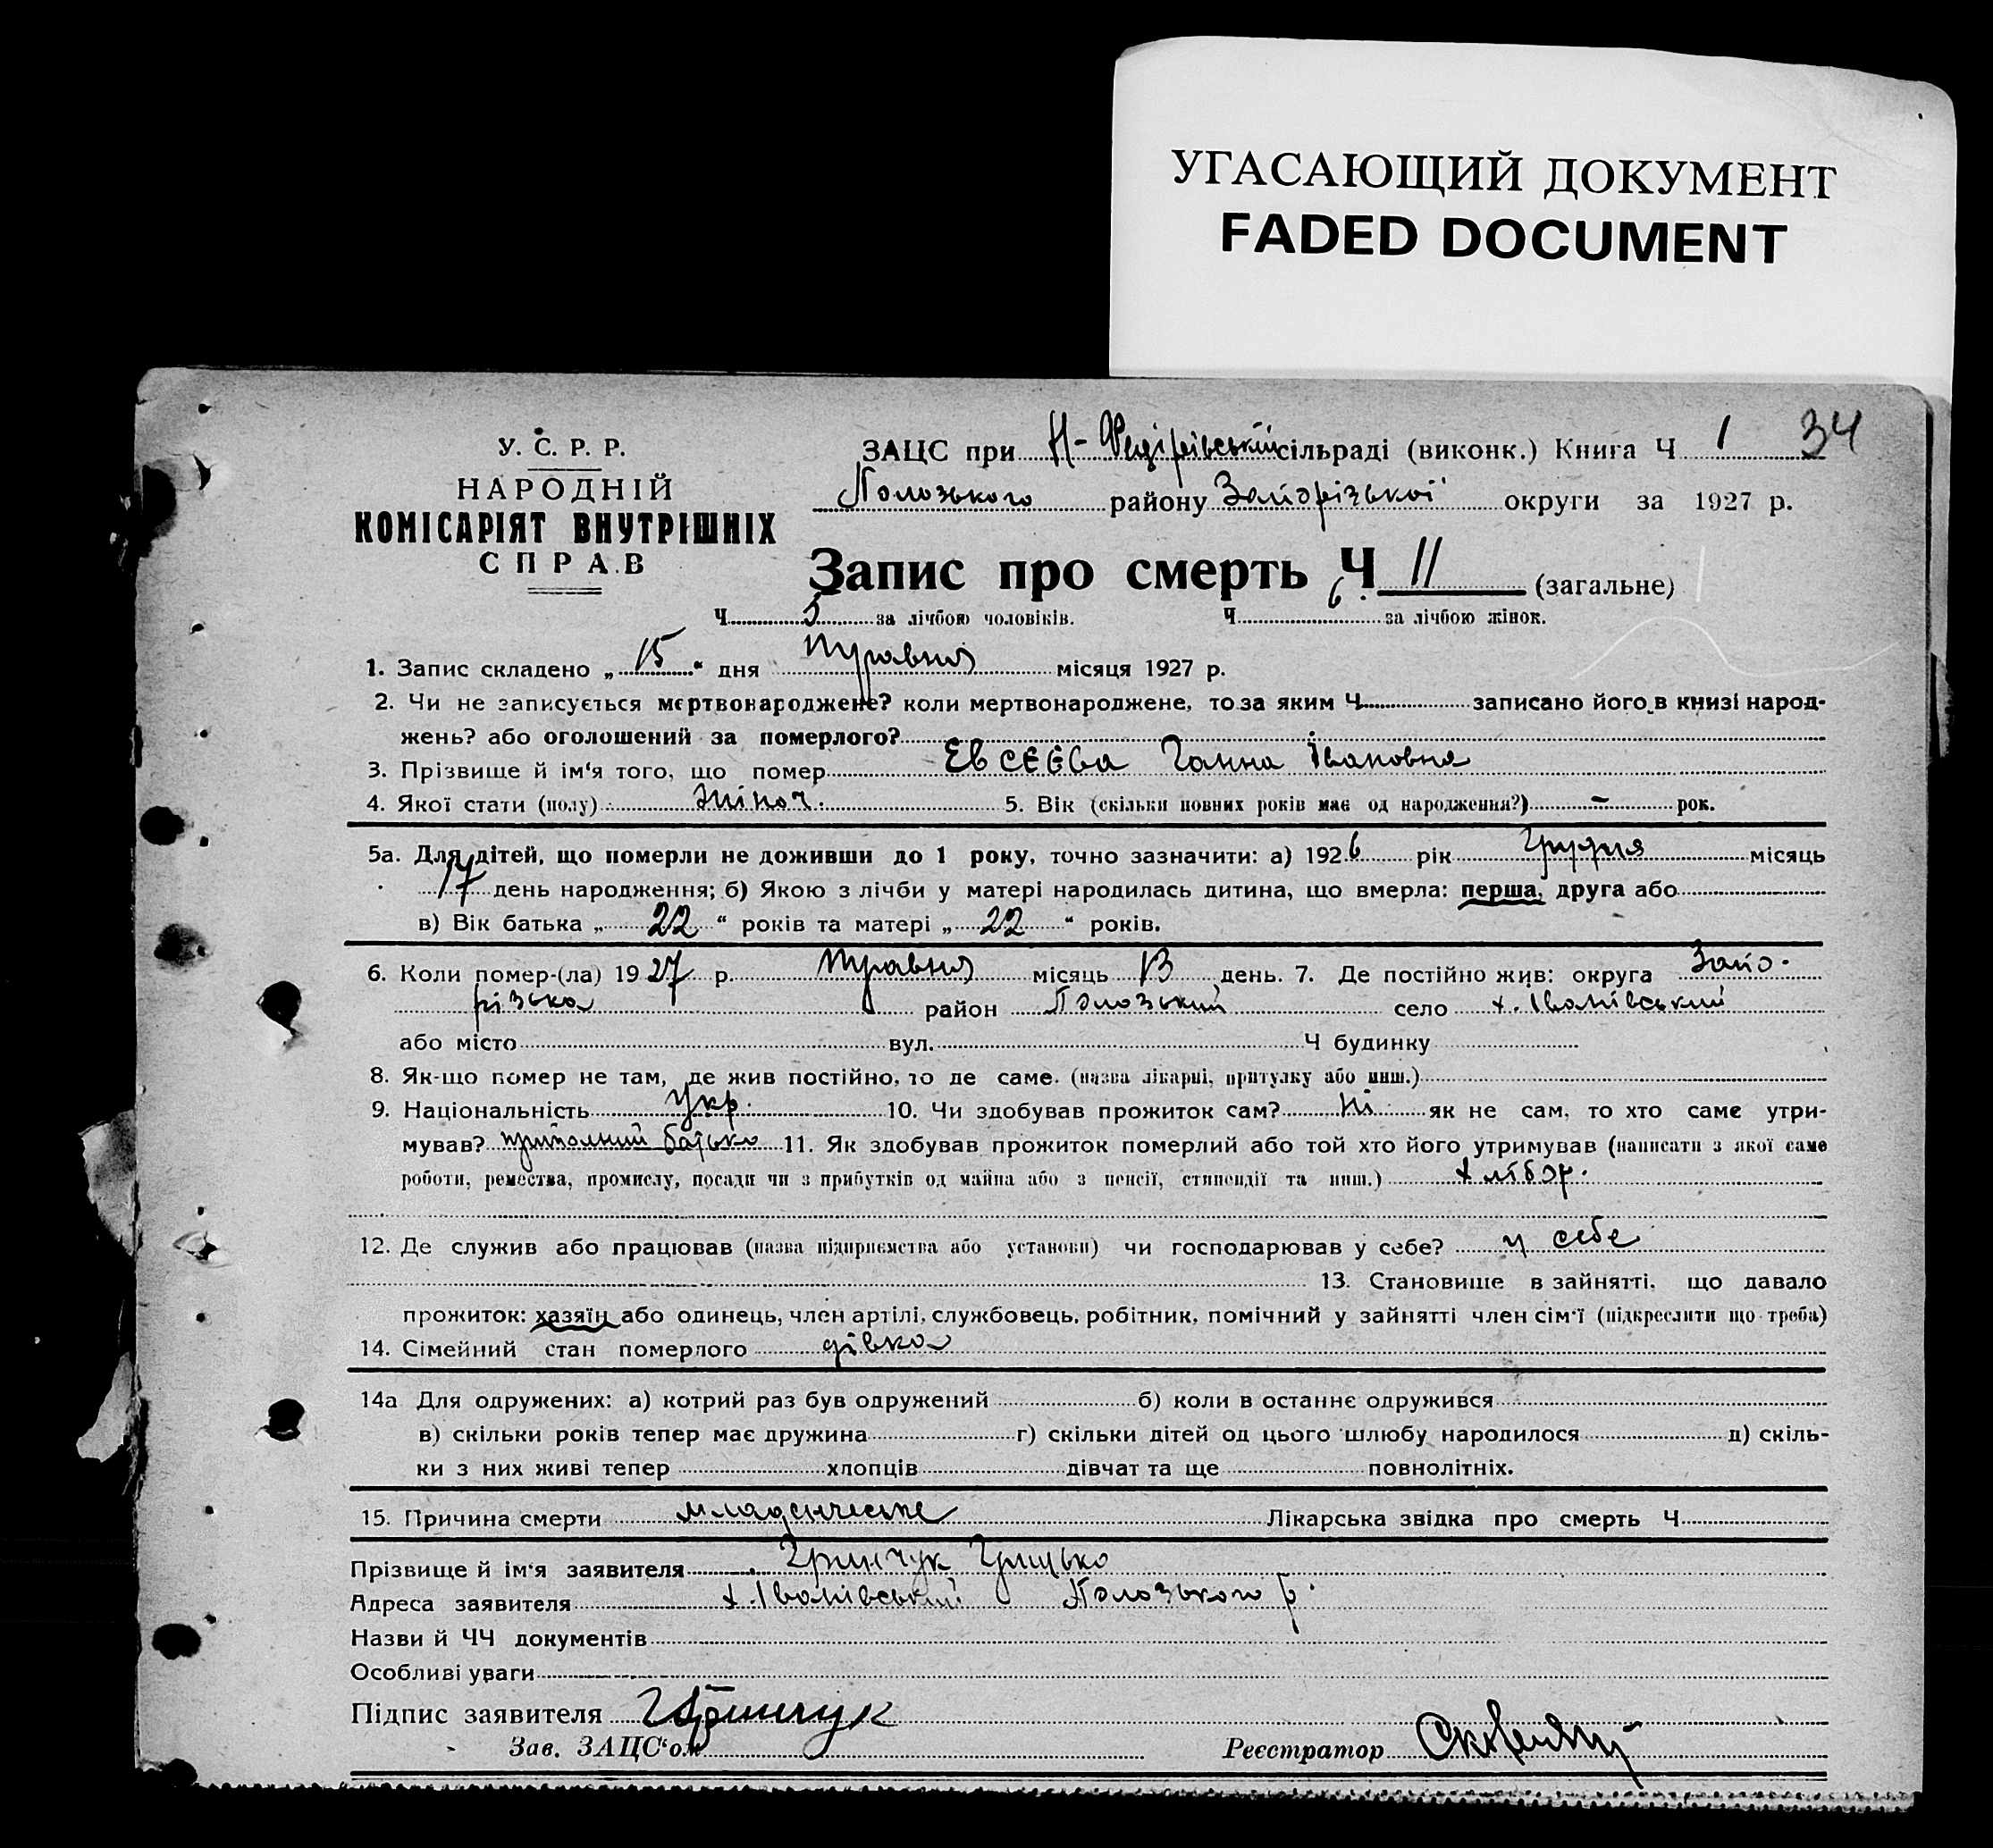 УГАСАЮЩИЙ ДОКУМЕНТ
FADED DOCUMENT
У. С. Р. Р.
НАРОДНІЙ
КОМІСАРІЯТ ВНУТРІШНІХ
СПРАВ
ЗАЦС при Н-Федірівській сільраді (виконк.) Книга Ч 1 34
Полозького району Запорізької округи за 1927 р.
Запис про смерть Ч 11 (загальне)
Ч 5 за лічбою чоловіків. Ч 6 за лічбою жінок.
1. Запис складено „ 15 “ дня травня місяця 1927 р.
2. Чи не записується мертвонароджене? коли мертвонароджене, то за яким Ч записано його в книзі народ-
жень? або оголошений за померлого?
3. Прізвище й ім'я того, що помер Евсєєва Ганна Івановна
4. Якої стати (полу) жіноч. 5. Вік (скільки повних років має од народження?) – рок.
5а. Для дітей, що померли не доживши до 1 року, точно зазначити: а) 1926 рік грудня місяць
17 день народження; б) Якою з лічби у матері народилась дитина, що вмерла: перша, друга або
в) Вік батька „ 22 “ років та матері „ 22 “ років.
6. Коли помер-(ла) 1927 р. травня місяць 13 день. 7. Де постійно жив: округа Запо-
різька район Полозький село х. Іванівський
або місто вул. Ч будинку
8. Як-що помер не там, де жив постійно, то де саме. (назва лікарні, притулку або инш.)
9. Національність укр. 10. Чи здобував прожиток сам? ні як не сам, то хто саме утри-
мував? батько 11. Як здобував прожиток померлий або той хто його утримував (написати з якої саме
роботи, ремества, промислу, посади чи з прибутків од майна або з пенсії, стипендії та инш.) хлібор.
12. Де служив або працював (назва підприємства або установи) чи господарював у себе? у себе
13. Становище в зайнятті, що давало
прожиток: хазяїн або одинець, член артілі, службовець, робітник, помічний у зайнятті член сім'ї (підкреслити що треба)
14. Сімейний стан померлого дівка
14а Для одружених: а) котрий раз був одружений б) коли в останнє одружився
в) скільки років тепер має дружина г) скільки дітей од цього шлюбу народилося д) скіль-
ки з них живі тепер хлопців дівчат та ще повнолітніх.
15. Причина смерти младенческе Лікарська звідка про смерть Ч
Прізвище й ім'я заявителя Гринчук Грицько
Адреса заявителя х. Іванівський Полозького р.
Назви й ЧЧ документів
Особливі уваги
Підпис заявителя Гринчук
Зав. ЗАЦС'ом Реєстратор